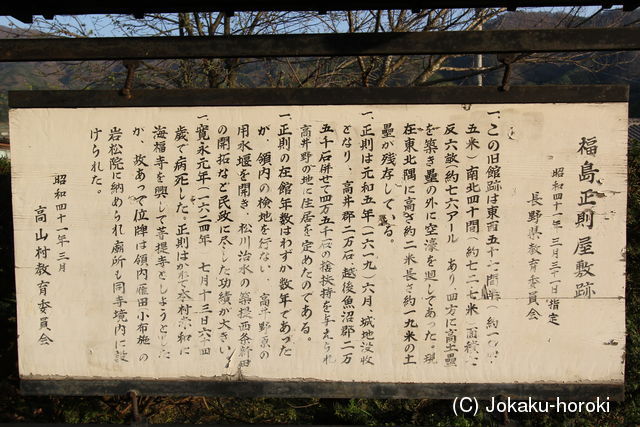 福島正則屋敷跡
昭和四十一年三月三十一日指定
長野県教育委員会
一、この旧館跡は東西五十 間
五米）南北四十間（約七二・七米 面積
反六畝（約七六アール あり 四方に高土塁
を築き塁の外に空濠を廻してあった。現
在東北隅に高さ約二米長さ約一九米の土
塁が残存している。
一、正則は元和五年（一六一九）六月、城地没収
となり、高井郡二万石、越後魚沼郡二万
五千石併せて四万五千石の捨扶持を与えられ
高井野の地に住居を定めたのである。
一、正則の在館年数はわずか数年であった
が、領内の検地を行ない、高井野原の
用水堰を開き、松川治水の築堤西条新田
の開拓など民政に尽した功績が大きい。
一、寛永元年（一六二四年） 七月十三日六十四
歳で病死した。正則はかねて本村 和に
海福寺を興して菩提寺としようとした
が、故あって位牌は領内雁田小布施 の
岩松院に納められ廟所も同寺境内に設
けられた。
昭和四十一年三月
高山村教育委員会
(C) Jokaku-horoki